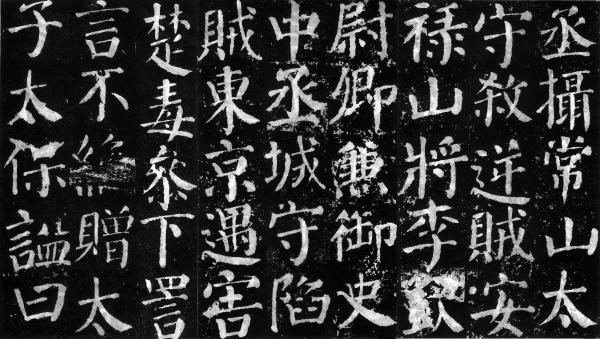 丞攝常山太
守殺逆賊安
祿山將李欽
尉卿兼御史
中丞城守陷
賊東京遇害
楚毒參下詈
言不絕贈太
子太保謚曰